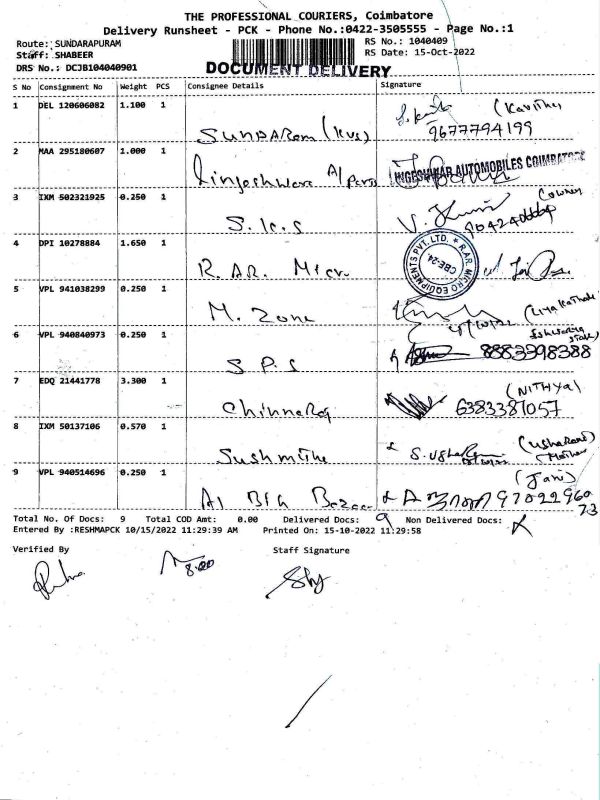 THE PROFESSIONAL COURIERS, Coimbatore
Delivery Runsheet - PCK - Phone No.:0422-3505555 - Page No.:1
Route: SUNDARAPURAM
RS No.: 1040409
Staff: SHABEER
RS Date: 15-Oct-2022
DRS No.: DCJB104040901
DOCUMENT DELIVERY
S No Consignment No Weight PCS Consignee Details Signature
1 DEL 120606082 1.100 1 (Kavitha)
SUNDARam (kvs) 9677794199
2 MAA 295180607 1.000 1
Lingeshware A/Parts LINGESHWAR AUTOMOBILES COIMBATORE
3 IXM 502321925 0.250 1 (owner)
S.K.S
4 DPI 10278884 1.650 1
R.AR. Micr. RAR MICRO EQUIPMENTS PVT. LTD. CBE-24
5 VPL 941038299 0.250 1
M. Zone
6 VPL 940840973 0.250 1
S P S 8883398388
7 EDQ 21441778 3.300 1 (NITHYA)
Chinnaraj 6383387057
8 IXM 50137106 0.570 1
Sushmitha (Usharani) Mother
9 VPL 940514696 0.250 1 (Jani)
A1 Big Bazaar 97022960
73
Total No. Of Docs: 9 Total COD Amt: 0.00 Delivered Docs: 9 Non Delivered Docs:
Entered By :RESHMAPCK 10/15/2022 11:29:39 AM Printed On: 15-10-2022 11:29:58
Verified By Staff Signature
8.00